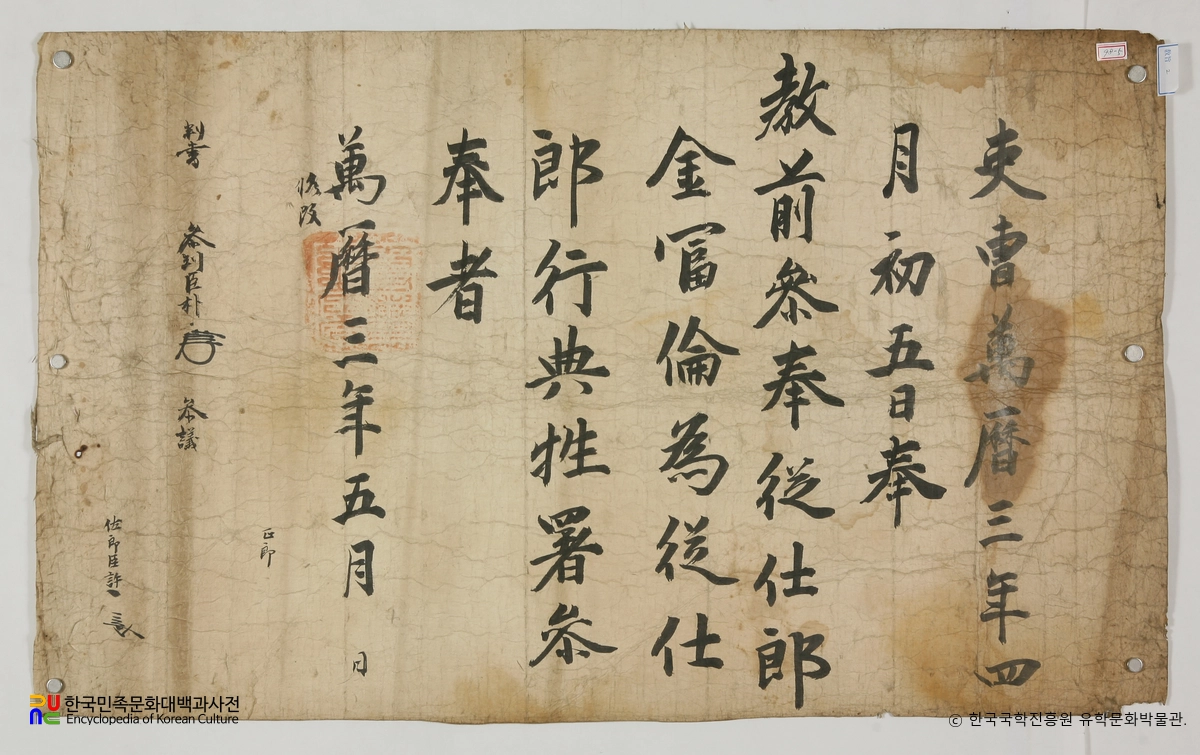 吏曹萬曆三年四
月初五日奉
教前參奉從仕郎
金冨倫為從仕
郎行典牲署参
奉者
萬曆三年五月 日
後改
正郎
判書 叅判臣朴 叅議
佐郎臣許
한국민족문화대백과사전
Encyclopedia of Korean Culture
© 한국국학진흥원 유학문화박물관.